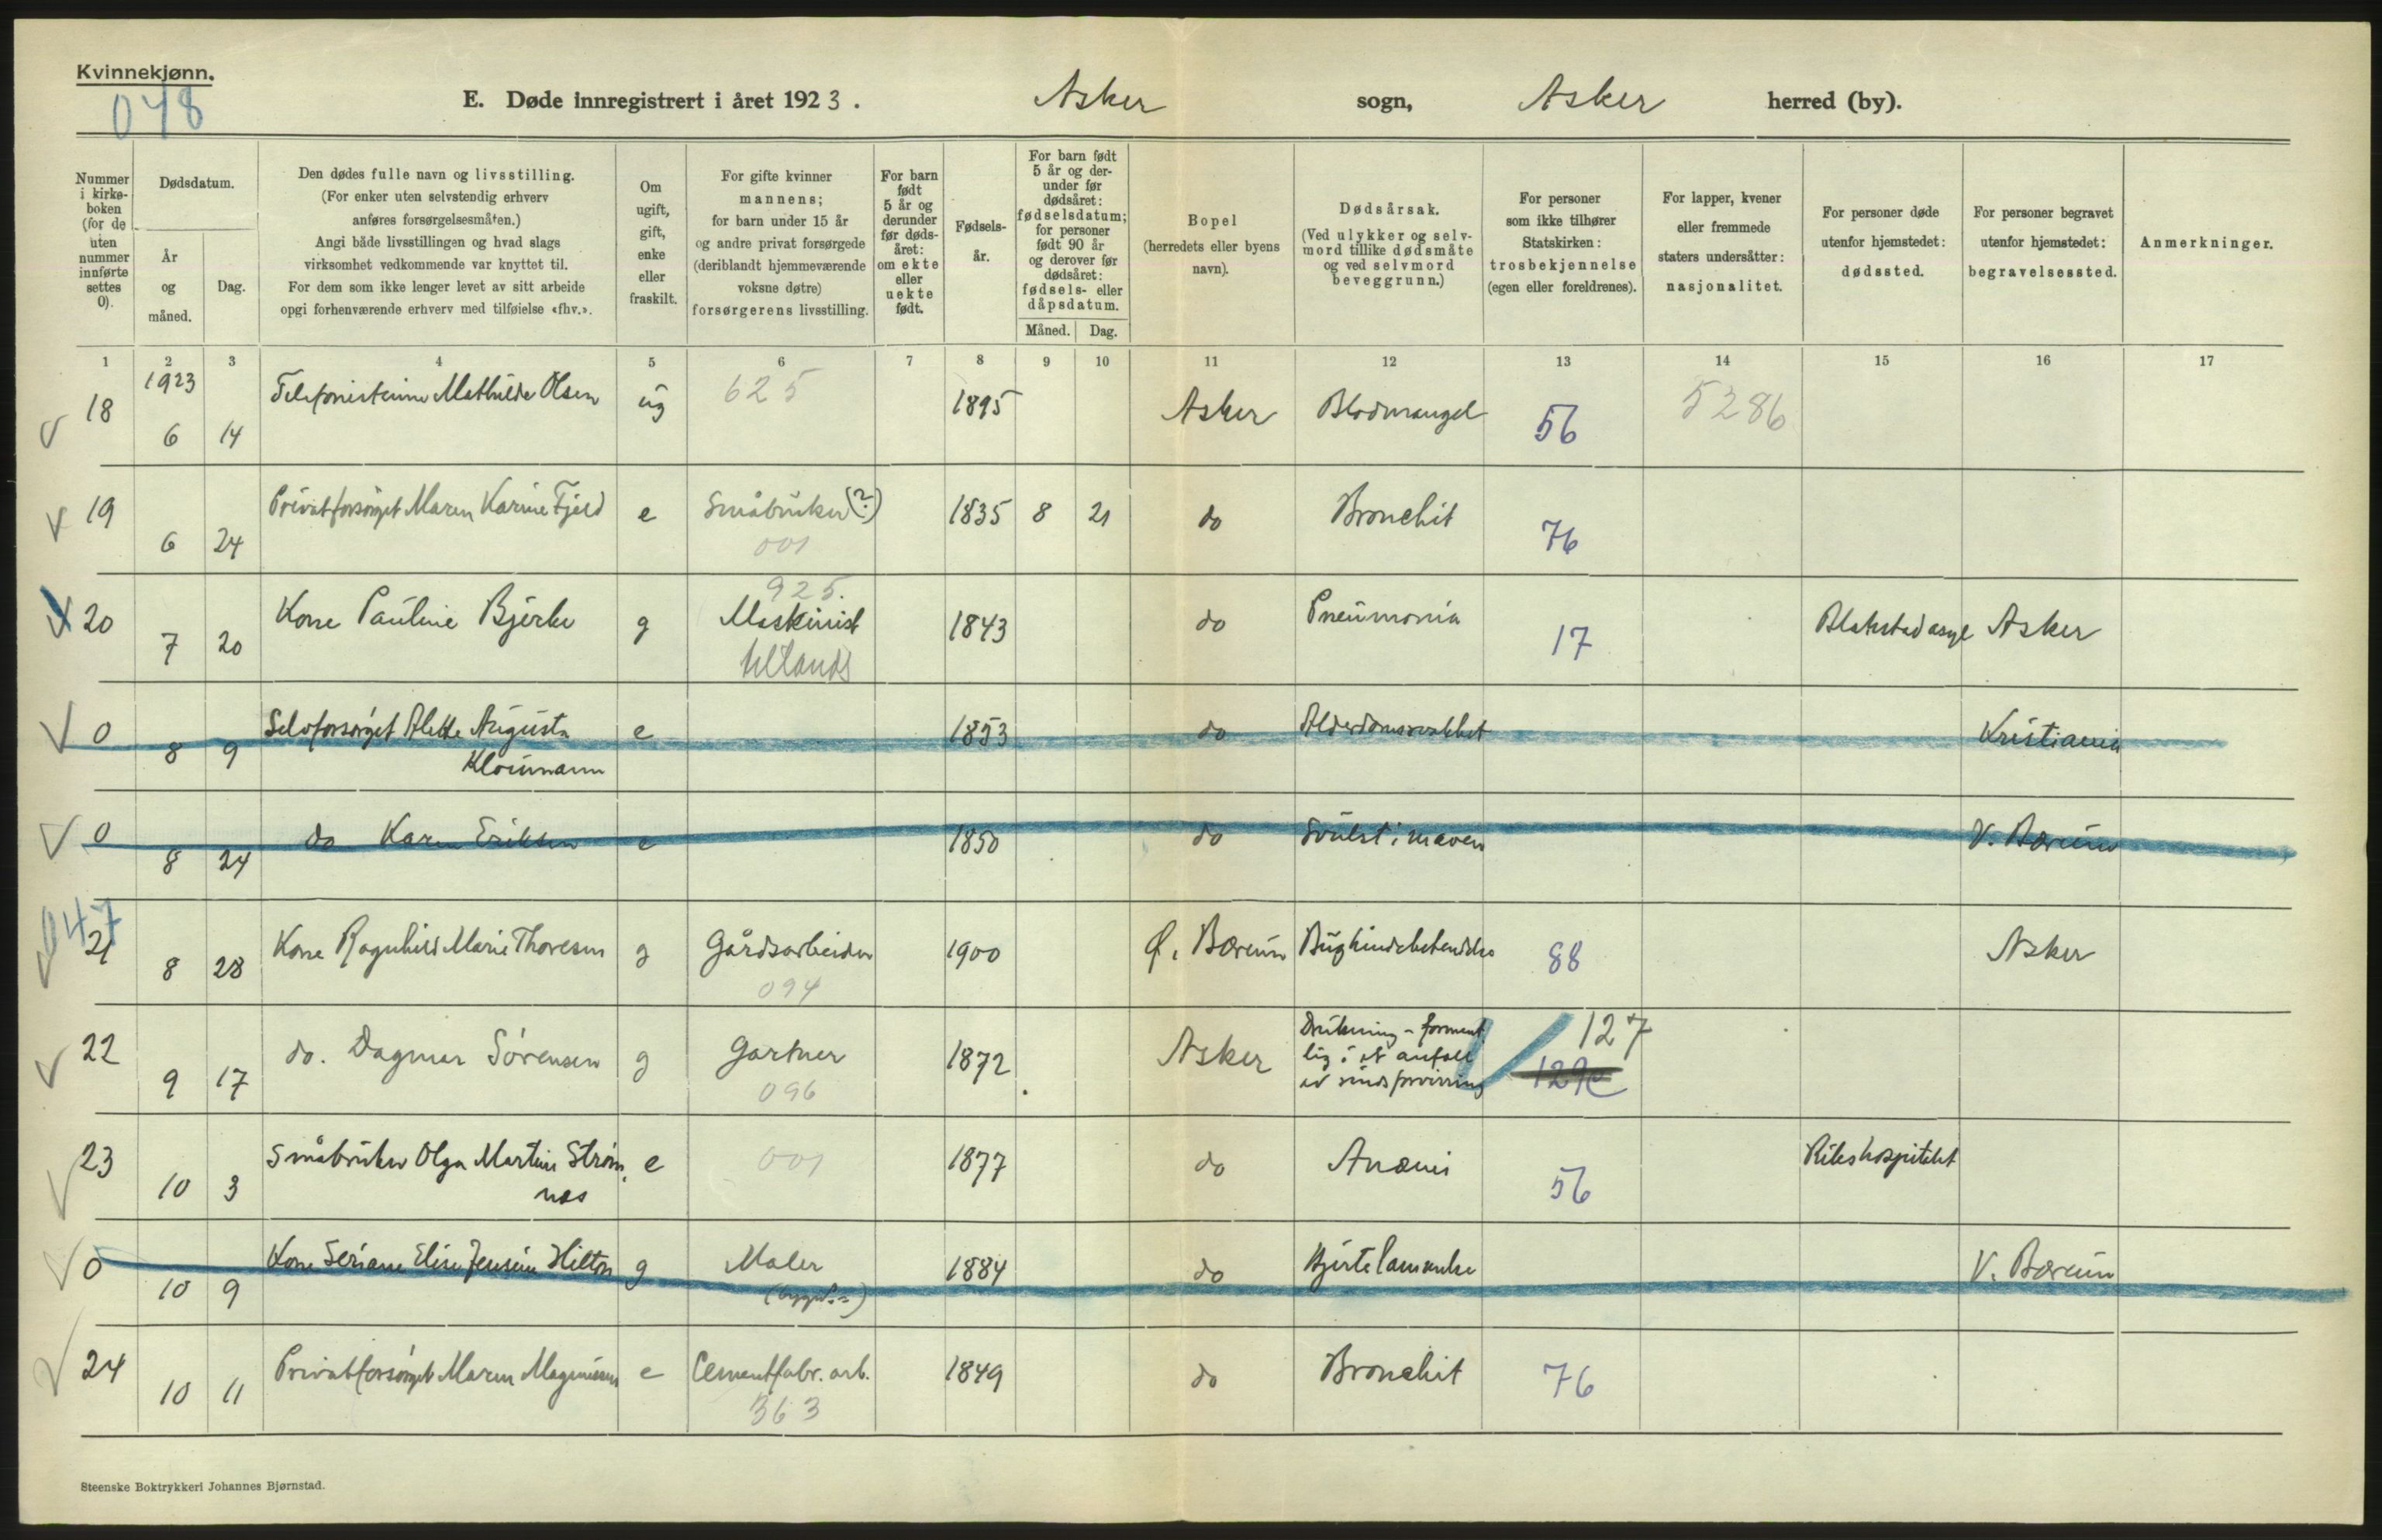 Kvinnekjønn.
048
E. Døde innregistrert i året 1923. Asker sogn, Asker herred (by).
Nummer i kirke-boken (for de uten nummer innførte settes 0).
Dødsdatum.
År og måned.
Dag.
Den dødes fulle navn og livsstilling.
(For enker uten selvstendig erhverv
anføres forsørgelsesmåten.)
Angi både livsstillingen og hvad slags
virksomhet vedkommende var knyttet til.
For dem som ikke lenger levet av sitt arbeide
opgi forhenværende erhverv med tilføielse «fhv.».
Om ugift, gift, enke eller fraskilt.
For gifte kvinner
mannens;
for barn under 15 år
og andre privat forsørgede
(deriblandt hjemmeværende
voksne døtre)
forsørgerens livsstilling.
For barn født 5 år og derunder før døds-året: om ekte eller uekte født.
Fødsels-år.
For barn født
5 år og der-
under før
dødsåret:
fødselsdatum;
for personer
født 90 år
og derover før
dødsåret:
fødsels- eller
dåpsdatum.
Måned. Dag.
Bopel
(herredets eller byens
navn).
Dødsårsak.
(Ved ulykker og selv-
mord tillike dødsmåte
og ved selvmord
beveggrunn.)
For personer
som ikke tilhører
Statskirken:
trosbekjennelse
(egen eller foreldrenes).
For lapper, kvener
eller fremmede
staters undersåtter:
nasjonalitet.
For personer døde
utenfor hjemstedet:
dødssted.
For personer begravet
utenfor hjemstedet:
begravelsessted.
Anmerkninger.
1 2 3 4 5 6 7 8 9 10 11 12 13 14 15 16 17
18 1923 6 14 Telefonistinne Mathilde Olsen ug 625 1895 Asker Blodmangel 56 5286
19 6 24 Privatforsørget Maren Karine Fjeld e Småbruker (?) 1835 8 21 do Bronchit 76
001
925.
20 7 20 Kone Pauline Bjerke g Maskinist 1843 do Pneumonia 17 Blakstad asyl Asker
utlands
0 8 9 Selvforsørget Alette Augusta e 1853 do Alderdomssvakhet Kristiania
Kloumann
0 8 24 do Karen Eriksen e 1850 do Svulst i maven V. Bærum
047
21 8 28 Kone Ragnhild Marie Thoresen g Gårdsarbeider 1900 Ø. Bærum Bughindebetendelse 88 Asker
094
22 9 17 do. Dagmar Sörensen g Gartner 1872 Asker Drukning - forment 127
lig i et anfall
av sindsforvirring
096
23 10 3 Småbruker Olga Martine Strøm e 001 1877 do Anæmi 56 Rikshospitalet
næs
0 10 9 Kone Seriane Elise Jensine Hilton g Maler 1884 do Hjertelammelse V. Bærum
24 10 11 Privatforsørget Maren Magnussen e Cementfabr. arb. 1849 do Bronchit 76
363
Steenske Boktrykkeri Johannes Bjørnstad.